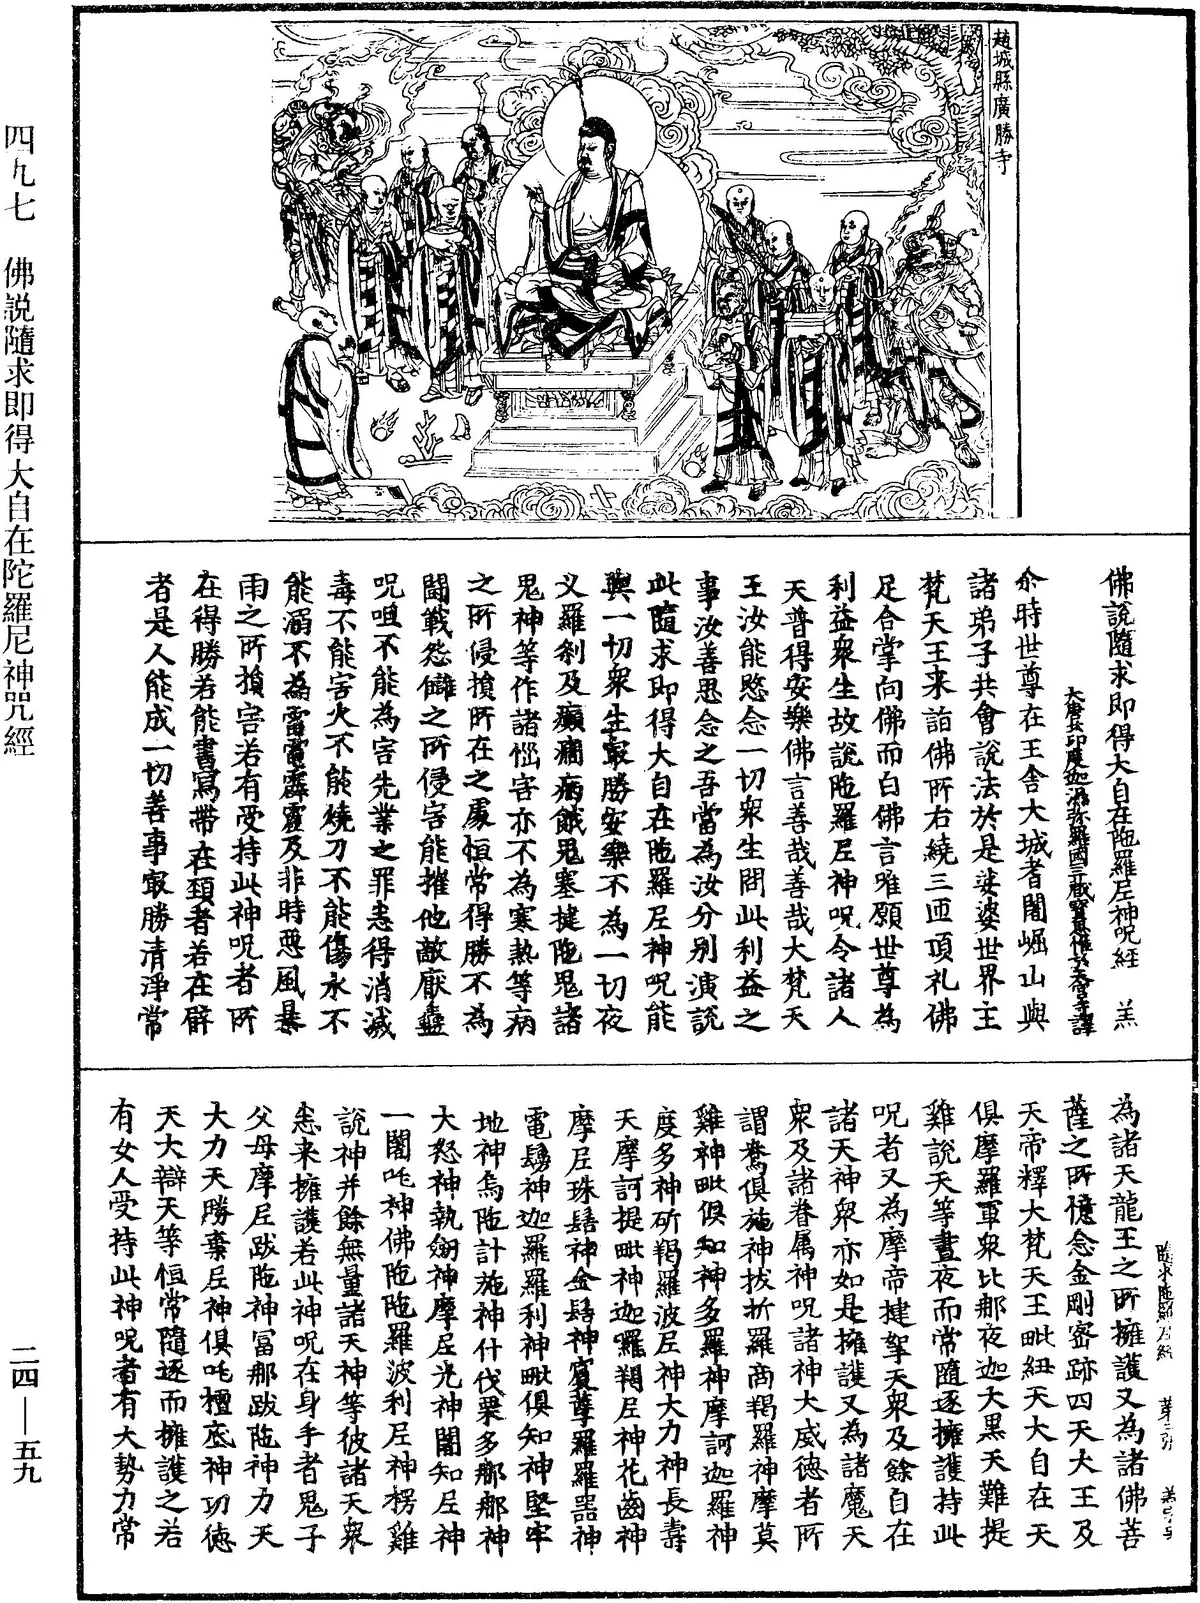 四九七　佛説隨求即得大自在陀羅尼神咒經
二四—五九
趙城縣廣勝寺
佛說隨求即得大自在陁羅尼神呪經　羔
尒時世尊在王舍大城耆闍崛山與
諸弟子共會說法於是娑婆世界主
梵天王来詣佛所右繞三迊頂礼佛
足合掌向佛而白佛言唯願世尊為
利益衆生故說陁羅尼神呪令諸人
天普得安樂佛言善哉善哉大梵天
王汝能愍念一切衆生問此利益之
事汝善思念之吾當為汝分别演說
此隨求即得大自在陁羅尼神呪能
與一切衆生冣勝安樂不為一切夜
义羅刹及癲癎病餓鬼塞揵陁鬼諸
鬼神等作諸惱害亦不為寒熱等病
之所侵損所在之處恒常得勝不為
鬪戰怨讎之所侵害能摧他敵厭蠱
呪咀不能為害先業之罪悉得消滅
毒不能害火不能燒刀不能傷永不
能溺不為雷電霹靂及非時惡風暴
雨之所損害若有受持此神呪者所
在得勝若能書寫帶在頚者若在臂
者是人能成一切善事冣勝清淨常
為諸天龍王之所擁護又為諸佛菩
薩之所憶念金剛密跡四天大王及
天帝釋大梵天王毗紐天大自在天
俱摩羅軍衆比那夜迦大黑天難提
雞說天等晝夜而常隨逐擁護持此
呪者又為摩帝揵拏天衆及餘自在
諸天神衆亦如是擁護又為諸魔天
衆及諸眷属神呪諸神大威徳者所
謂鴦俱施神拔折羅商羯羅神摩莫
雞神毗俱知神多羅神摩訶迦羅神
度多神斫羯羅波尼神大力神長壽
天摩訶提毗神迦囉羯尼神花齒神
摩尼珠髻神金髻神賔䔍羅羅器神
電鬘神迦羅羅利神毗俱知神堅牢
地神烏陁計施神什伐栗多那那神
大怒神執劒神摩尼光神闍知尼神
一闍吒神佛陁陁羅波利尼神楞雞
說神并餘無量諸天神等彼諸天衆
悉来擁護若此神呪在身手者鬼子
父母摩尼跋陁神冨那跋陁神力天
大力天勝棄尼神俱吒檀底神功徳
天大辯天等恒常隨逐而擁護之若
有女人受持此神呪者有大勢力常
隨求陁羅尼經　第二张